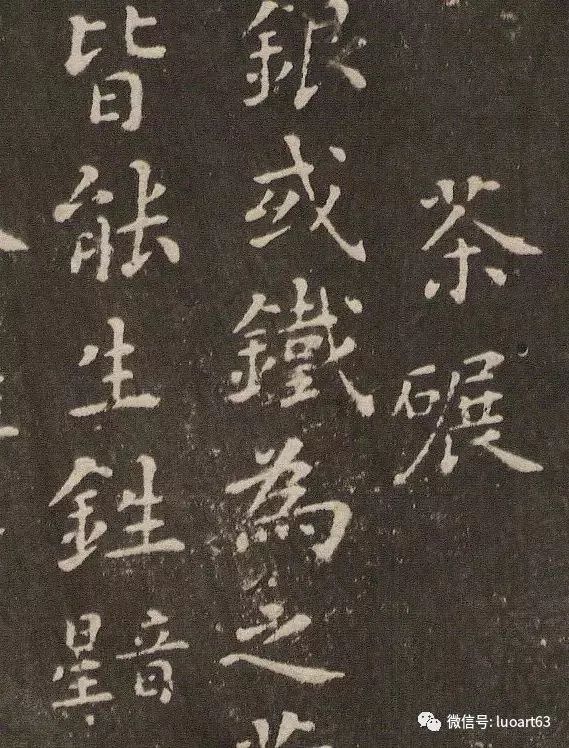 茶碾
銀或鐵為之
皆能生鉎音星
微信号: luoart63